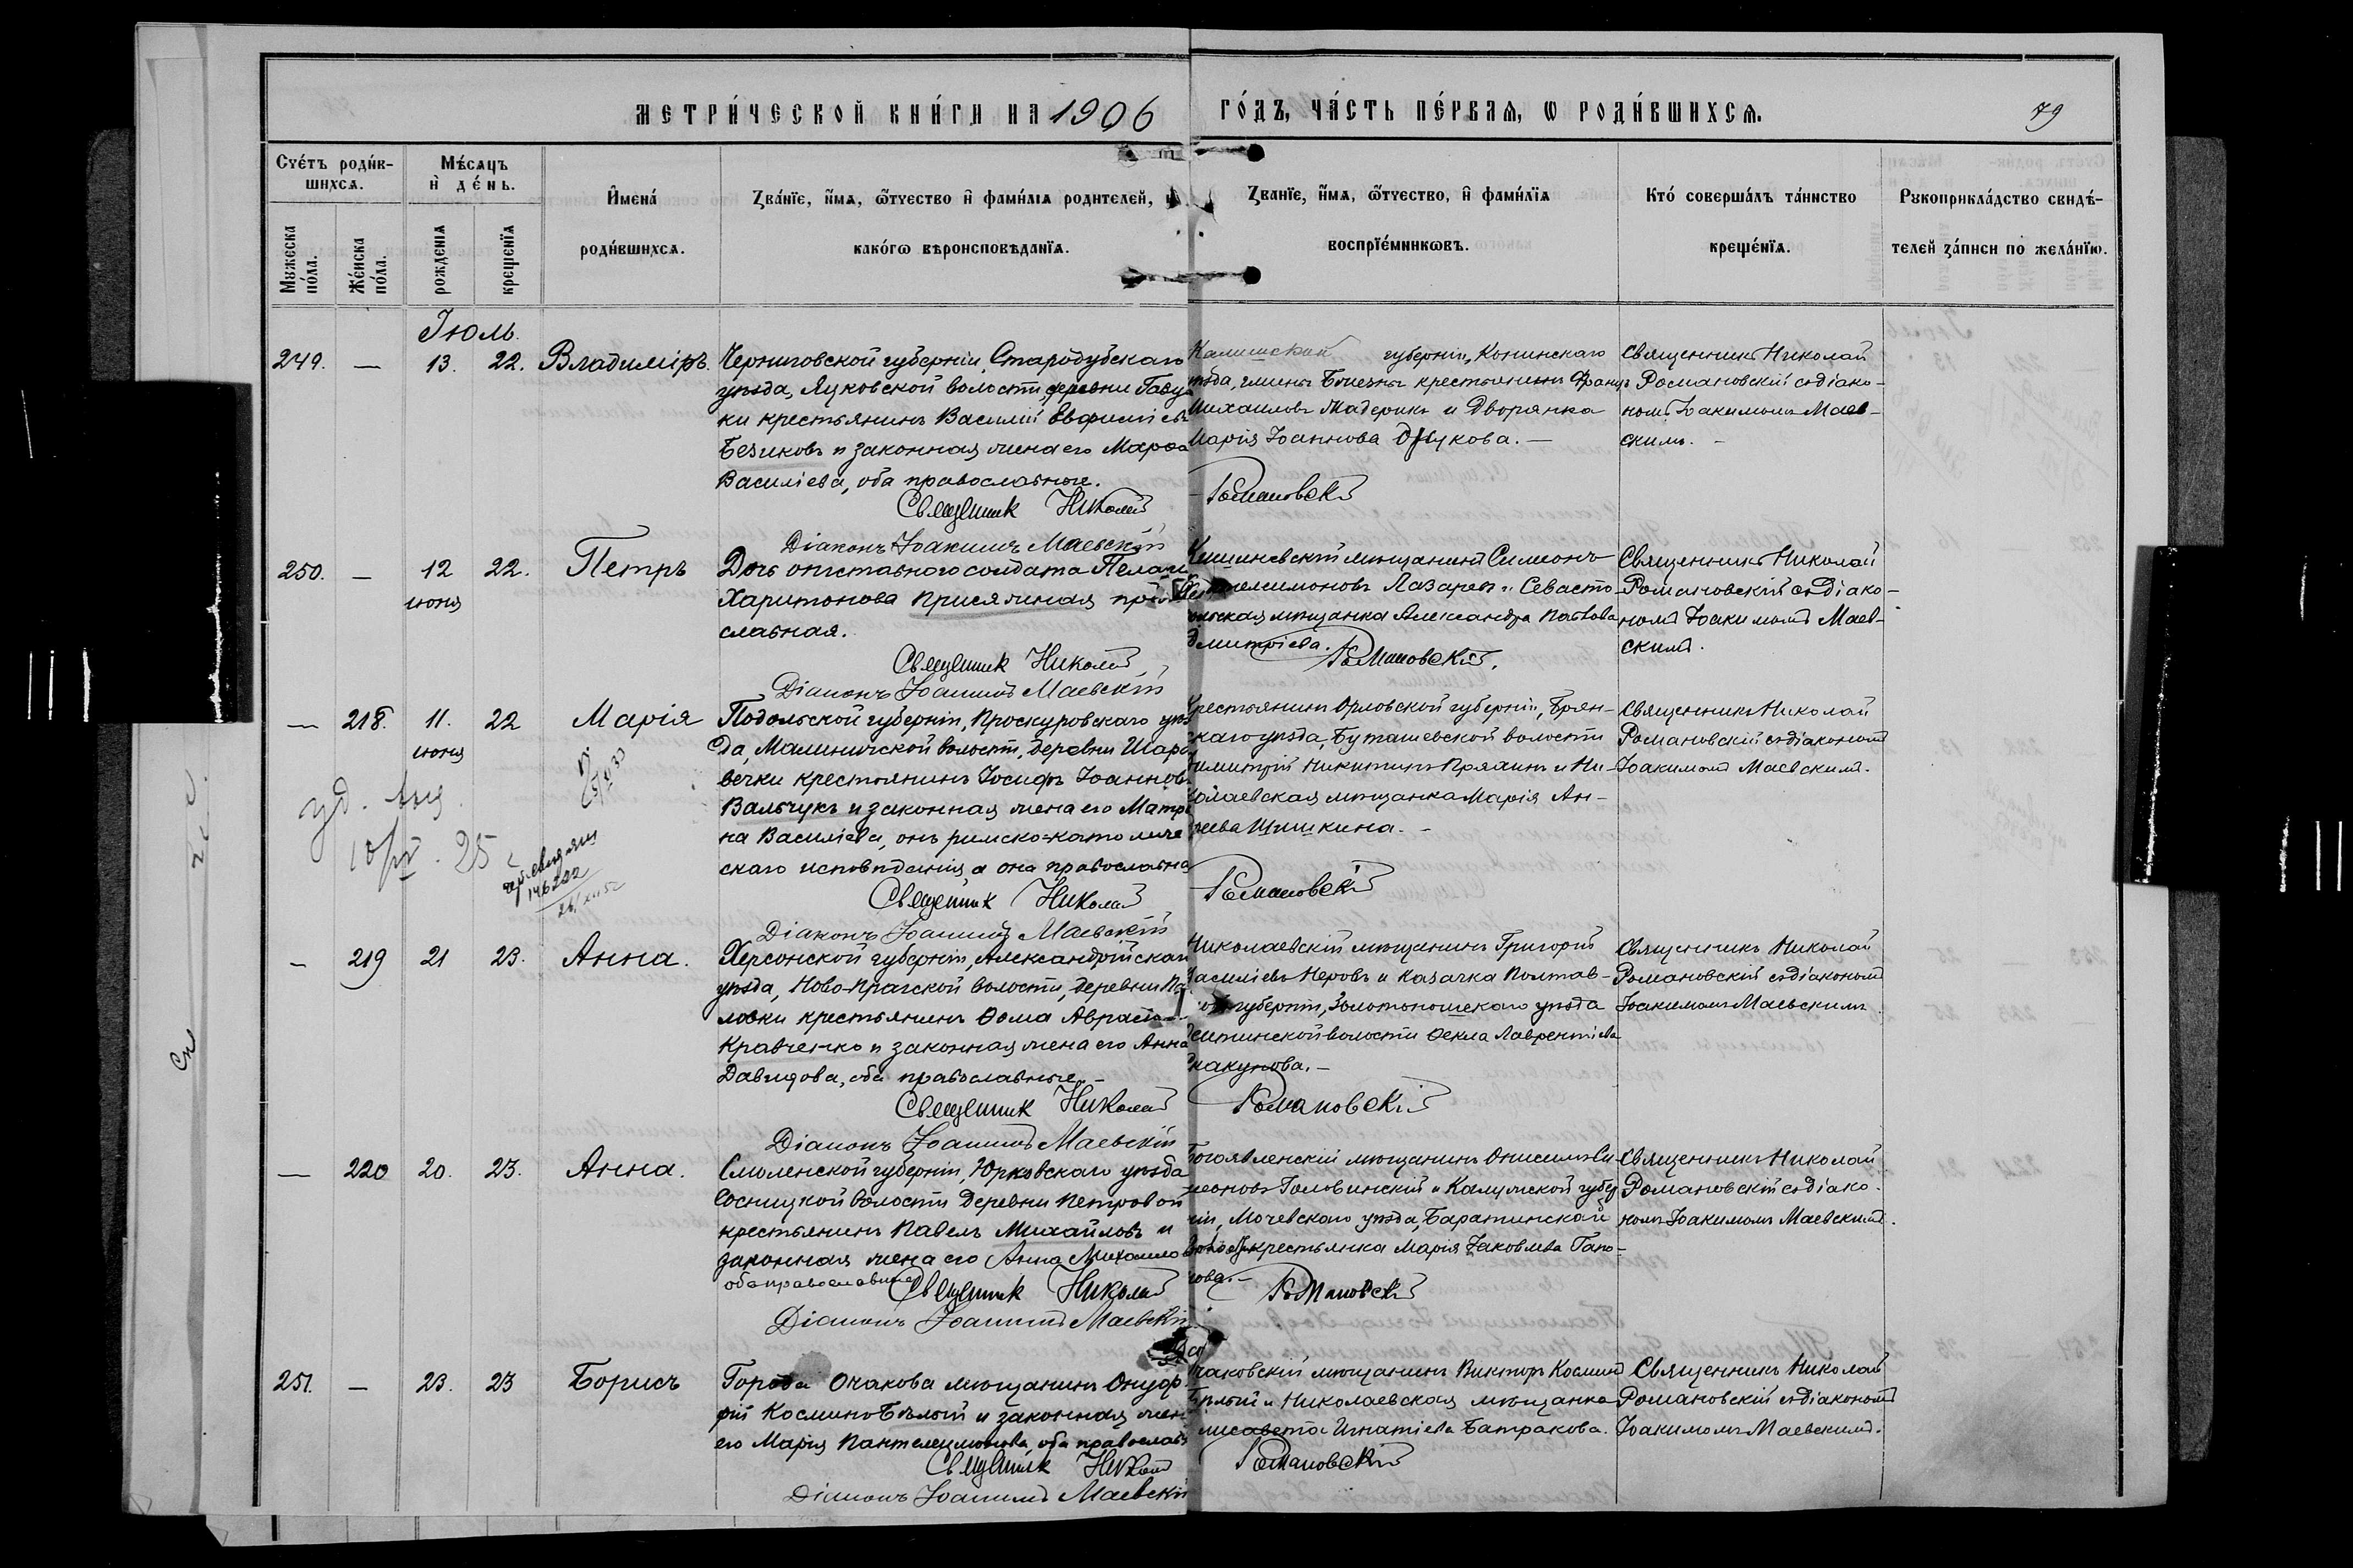 МЕТРИ́ЧЕСКОЙ КНИ́ГИ НА 1906
ГО́ДЪ, ЧА́СТЬ ПЕ́РВАѦ, Ѡ РОДИ́ВШИХСѦ.
79
Счéтъ роди́в-
шихсѧ.
Мужеска
по́ла.
Же́нска
по́ла.
Мѣ́сѧцъ
и҆ де́нь.
рожденїѧ
крещенїѧ
И҆мена́
роди́вшихсѧ.
Зва́нїе, и҆́мѧ, ѻ҆́тчество и҆ фами́лїѧ родителей, и
како́гѡ вѣроисповѣданїѧ.
Зва́нїе, и҆́мѧ, ѻ҆́тчество, и҆ фами́лїѧ
воспрїе́мникѡвъ.
Кто́ соверша́лъ та́инство
креще́нїѧ.
Рукоприкла́дство свидѣ́-
телей за́писи по жела́нїю.
Іюль.
249. — 13. 22. Владиміръ.
Черниговской губерніи, Стародубскаго
уѣзда, Луковской волости, деревни
ки крестьянинъ Василій Евфиміевъ
Безиковъ и законная жена его Марѳа
Василіева, оба православные.
Священник Николай
Романовскій
Діаконъ Іоакимъ Маевскій
Калишской губерніи, Конинскаго
уѣзда, гмины крестьянинъ Францъ
Михаиловъ Мадерикъ и Дворянка
Марія Іоаннова
Священникъ Николай
Романовскій съ діако-
номъ Іоакимомъ Маев-
скимъ. -
250. — 12 22. Петръ
іюня
Дочь отставного солдата Пелагія
Харитонова Присяжная право
славная.
Священник Николай
Романовскій.
Діаконъ Іоакимъ Маевскій
Кишиневскій мѣщанинъ Симеонъ
Пантелеимоновъ Лазаревъ и Севасто-
польская мѣщанка Александра Павлова
Димитріева.
Священникъ Николай
Романовскій съ діако-
номъ Іоакимомъ Маев-
скимъ.
— 218. 11. 22 Марія
іюня
Подольской губерніи, Проскуровскаго уѣз
да, Малиничской волости, деревни Шаро
вечки крестьянинъ Іосифъ Іоанновъ
Вальчукъ и законная жена его Матро
на Василіева, онъ римско-католиче
скаго исповѣданія а она православна
Священник Николай
Романовскій
Діаконъ Іоакимъ Маевскій
Крестьянинъ Орловской губерніи, Брян-
скаго уѣзда, Буташевской волости
Димитрій Никитинъ Пряхинъ и Ни-
колаевская мѣщанка Марія Ан-
реева Шишкина. -
Священникъ Николай
Романовскій съ діакономъ
Іоакимомъ Маевскимъ.
25
146222
— 219 21 23. Анна.
Херсонской губерніи, Александрійскаго
уѣзда, Ново-Прагской волости, деревни Па
ловки крестьянинъ Ѳома Аврамо
Кравченко и законная жена его Анна
Давидова, оба православные. -
Священник Николай
Романовскій
Діаконъ Іоакимъ Маевскій
Николаевскій мѣщанинъ Григорій
Василіевъ Неровъ и казачка Полтав-
ской губерніи, Золотоношскаго уѣзда
волости Ѳекла Лаврентіева
Скакунова. —
Священникъ Николай
Романовскій съ діакономъ
Іоакимомъ Маевскимъ.
— 220 20. 23. Анна.
Смоленской губерніи, Юрковскаго уѣзда
Сосницкой волости деревни Петровой
крестьянинъ Павелъ Михайловъ и
законная жена его Анна Михаилова
оба православные
Священник Николай
Романовскій
Діаконъ Іоакимъ Маевскій
Богоявленскій мѣщанинъ Онисимъ Си-
меоновъ Головинскій и Калужской губер
ніи, Мочевскаго уѣзда, Баратинской
волости крестьянка Марія Іаковлева Гапо-
нова. -
Священникъ Николай
Романовскій съ діако-
номъ Іоакимомъ Маевскимъ.
251. — 23. 23 Борисъ
Города Очакова мѣщанинъ Онуф-
рій Косминъ Бѣлый и законная жен
его Марія Пантелеимонова, оба православн
Священник Николай
Романовскій
Діаконъ Іоакимъ Маевскій
Очаковскій мѣщанинъ Викторъ Косминъ
Бѣлый и Николаевская мѣщанка
Елисавета Игнатіева Батракова.
Священникъ Николай
Романовскій съ діакономъ
Іоакимомъ Маевскимъ.